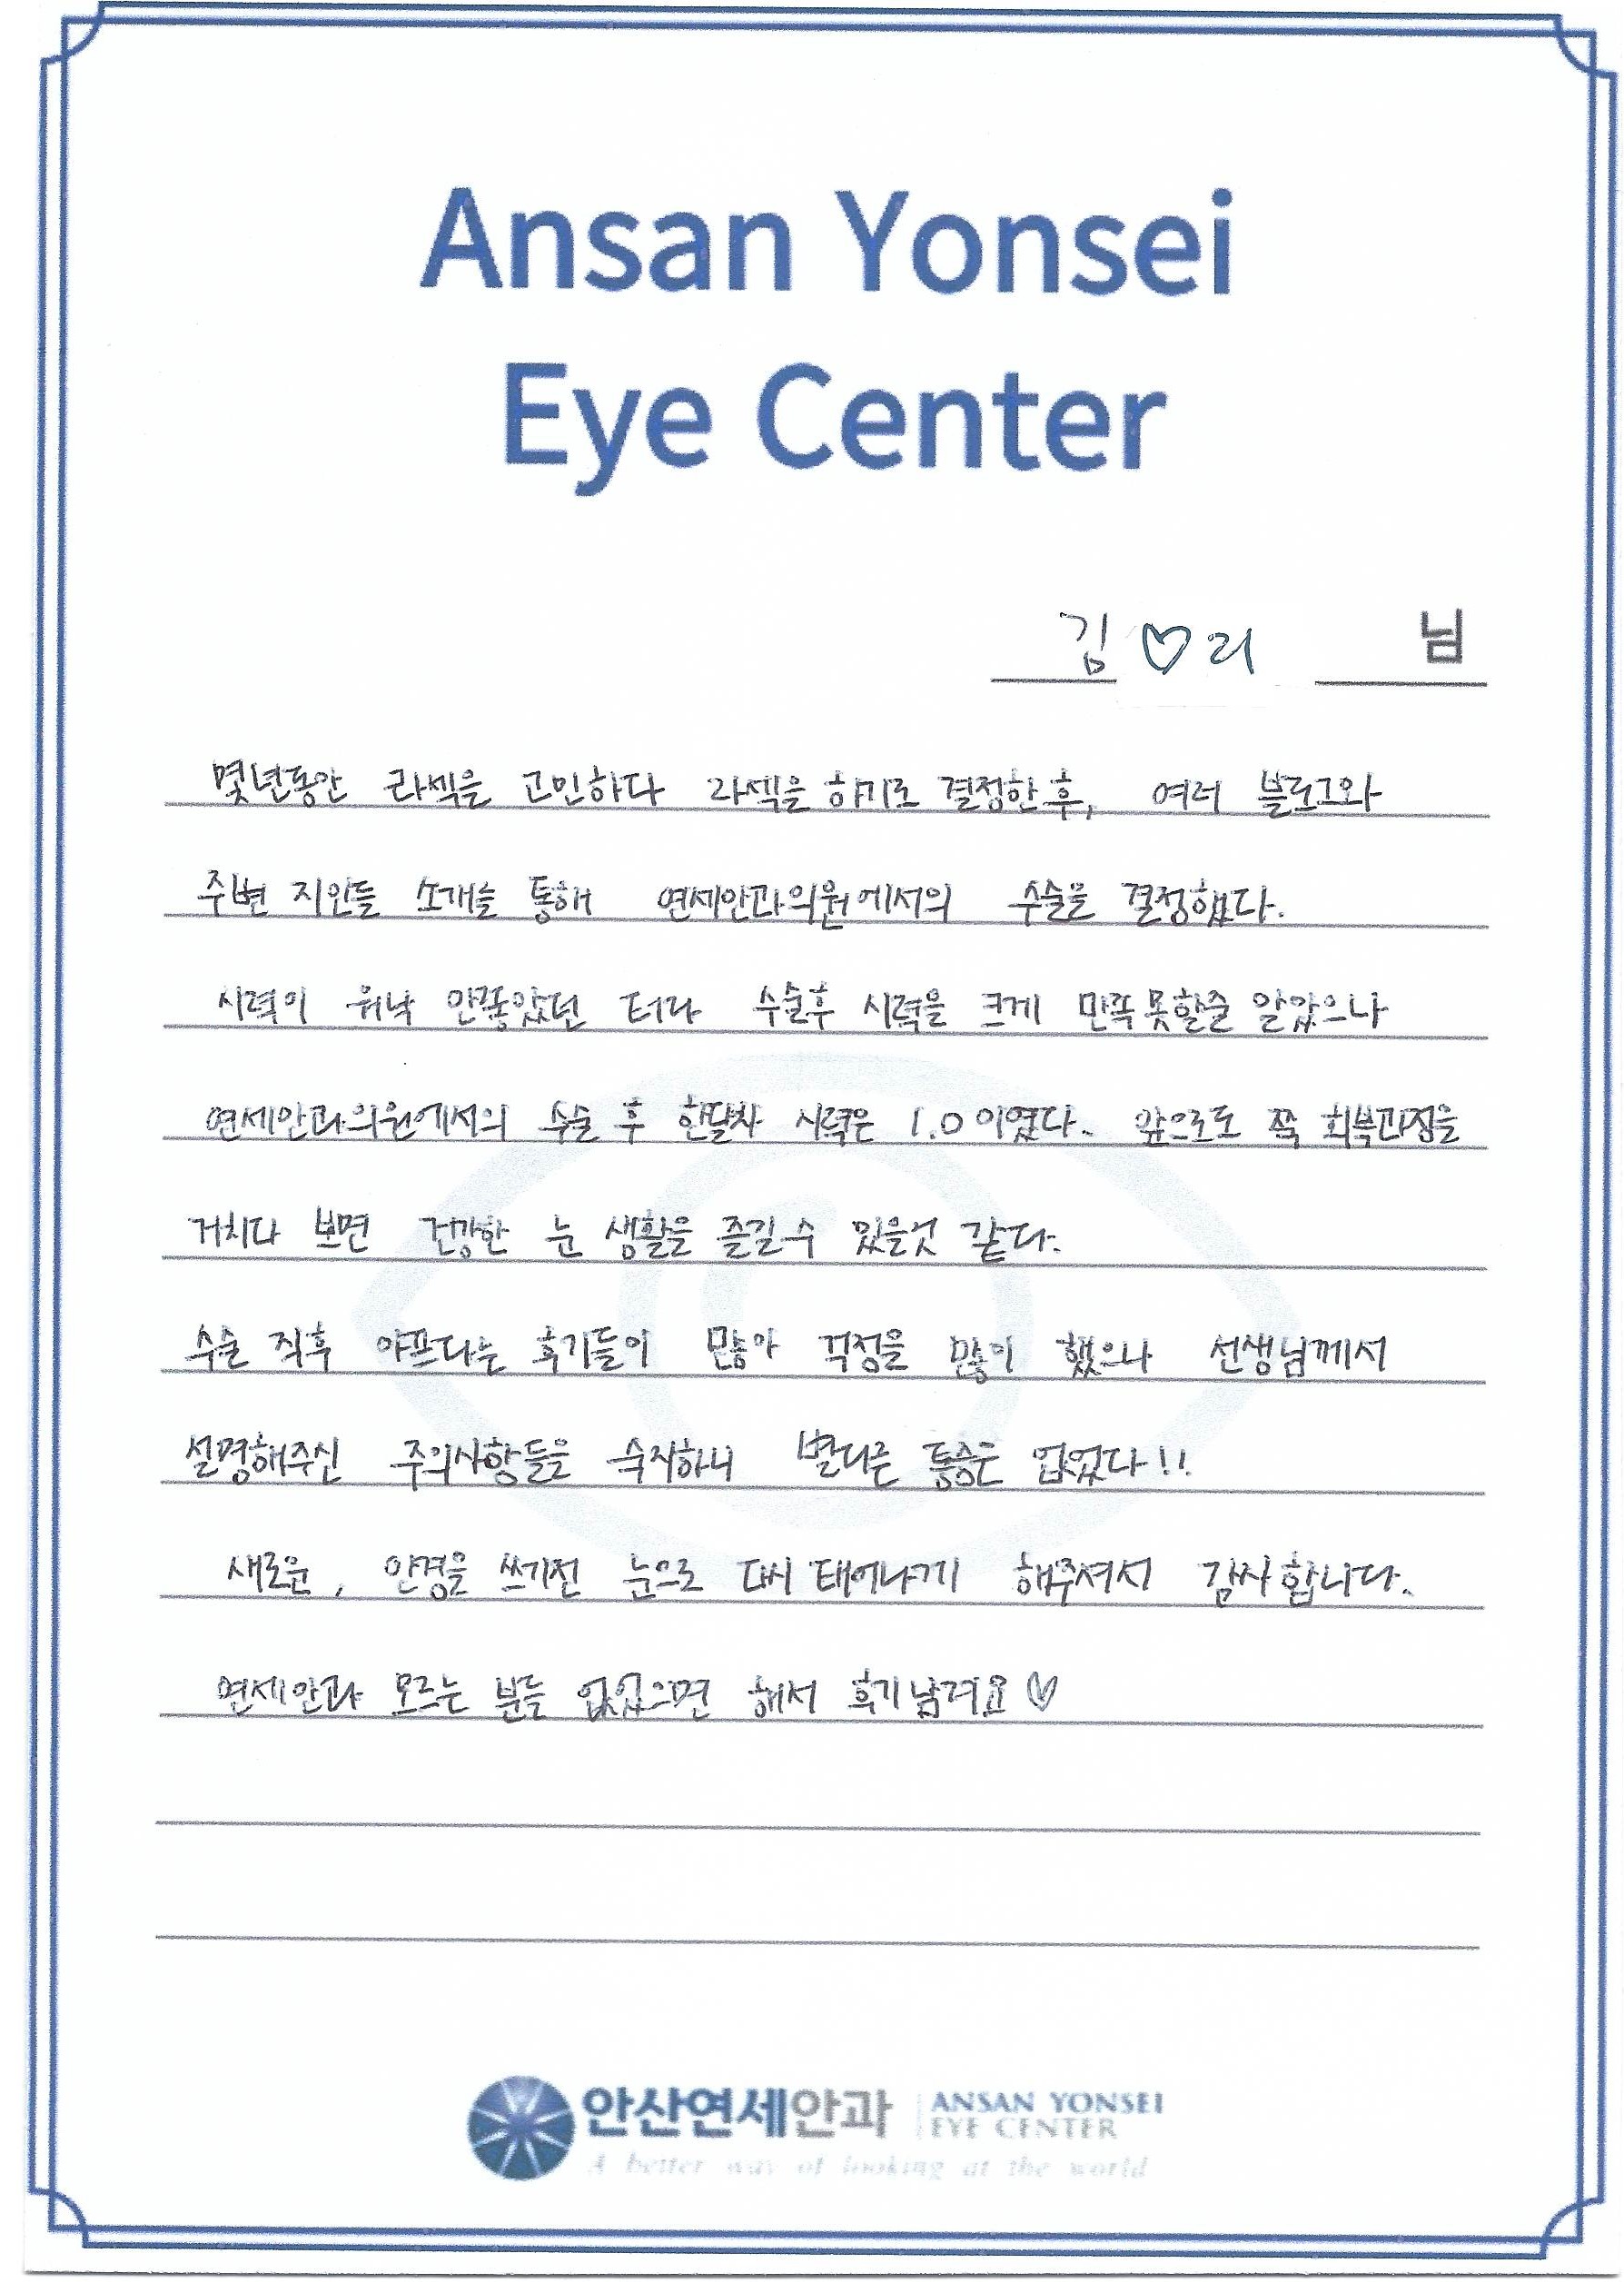 Ansan Yonsei
Eye Center
김♡리 님
몇년동안 라섹을 고민하다 라섹을 하기로 결정한 후, 여러 블로그와
주변 지인들 소개를 통해 연세안과의원에서의 수술을 결정했다.
시력이 워낙 안좋았던 터라 수술후 시력을 크게 만족 못할줄 알았으나
연세안과의원에서의 수술 후 한달차 시력은 1.0이였다. 앞으로도 쭉 회복과정을
거치다 보면 건강한 눈 생활을 즐길 수 있을것 같다.
수술 직후 아프다는 후기들이 많아 걱정을 많이 했으나 선생님께서
설명해주신 주의사항들을 숙지하니 별다른 통증은 없었다!!
새로운, 안경을 쓰기전 눈으로 다시 태어나게 해주셔서 감사합니다.
연세안과 모르는 분들 없었으면 해서 후기남겨요♡
안산연세안과 ANSAN YONSEI
EYE CENTER
A better way of looking at the world